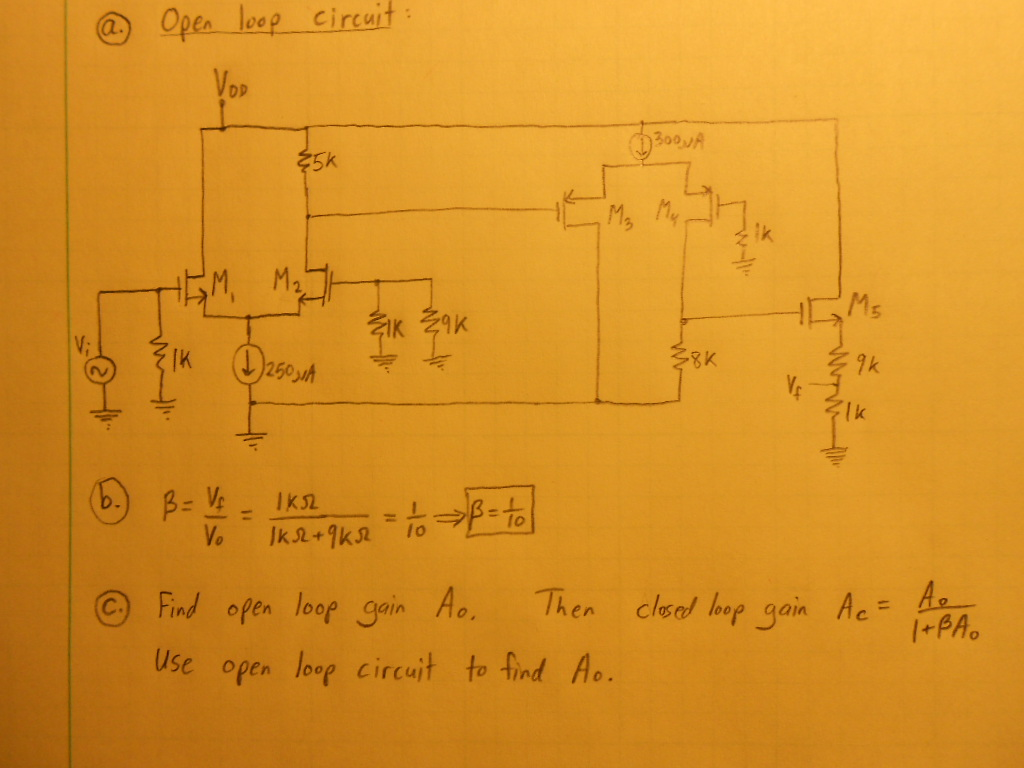 a. Open loop circuit:
VDD
5K
300μA
M3
M4
1K
M1
M2
M5
1K
9K
Vi
1K
250μA
8K
9K
Vf
1K
b. β = Vf/Vo = 1KΩ/(1KΩ+9KΩ) = 1/10 ⇒ β = 1/10
c. Find open loop gain Ao. Then closed loop gain Ac = Ao/(1+βAo)
Use open loop circuit to find Ao.